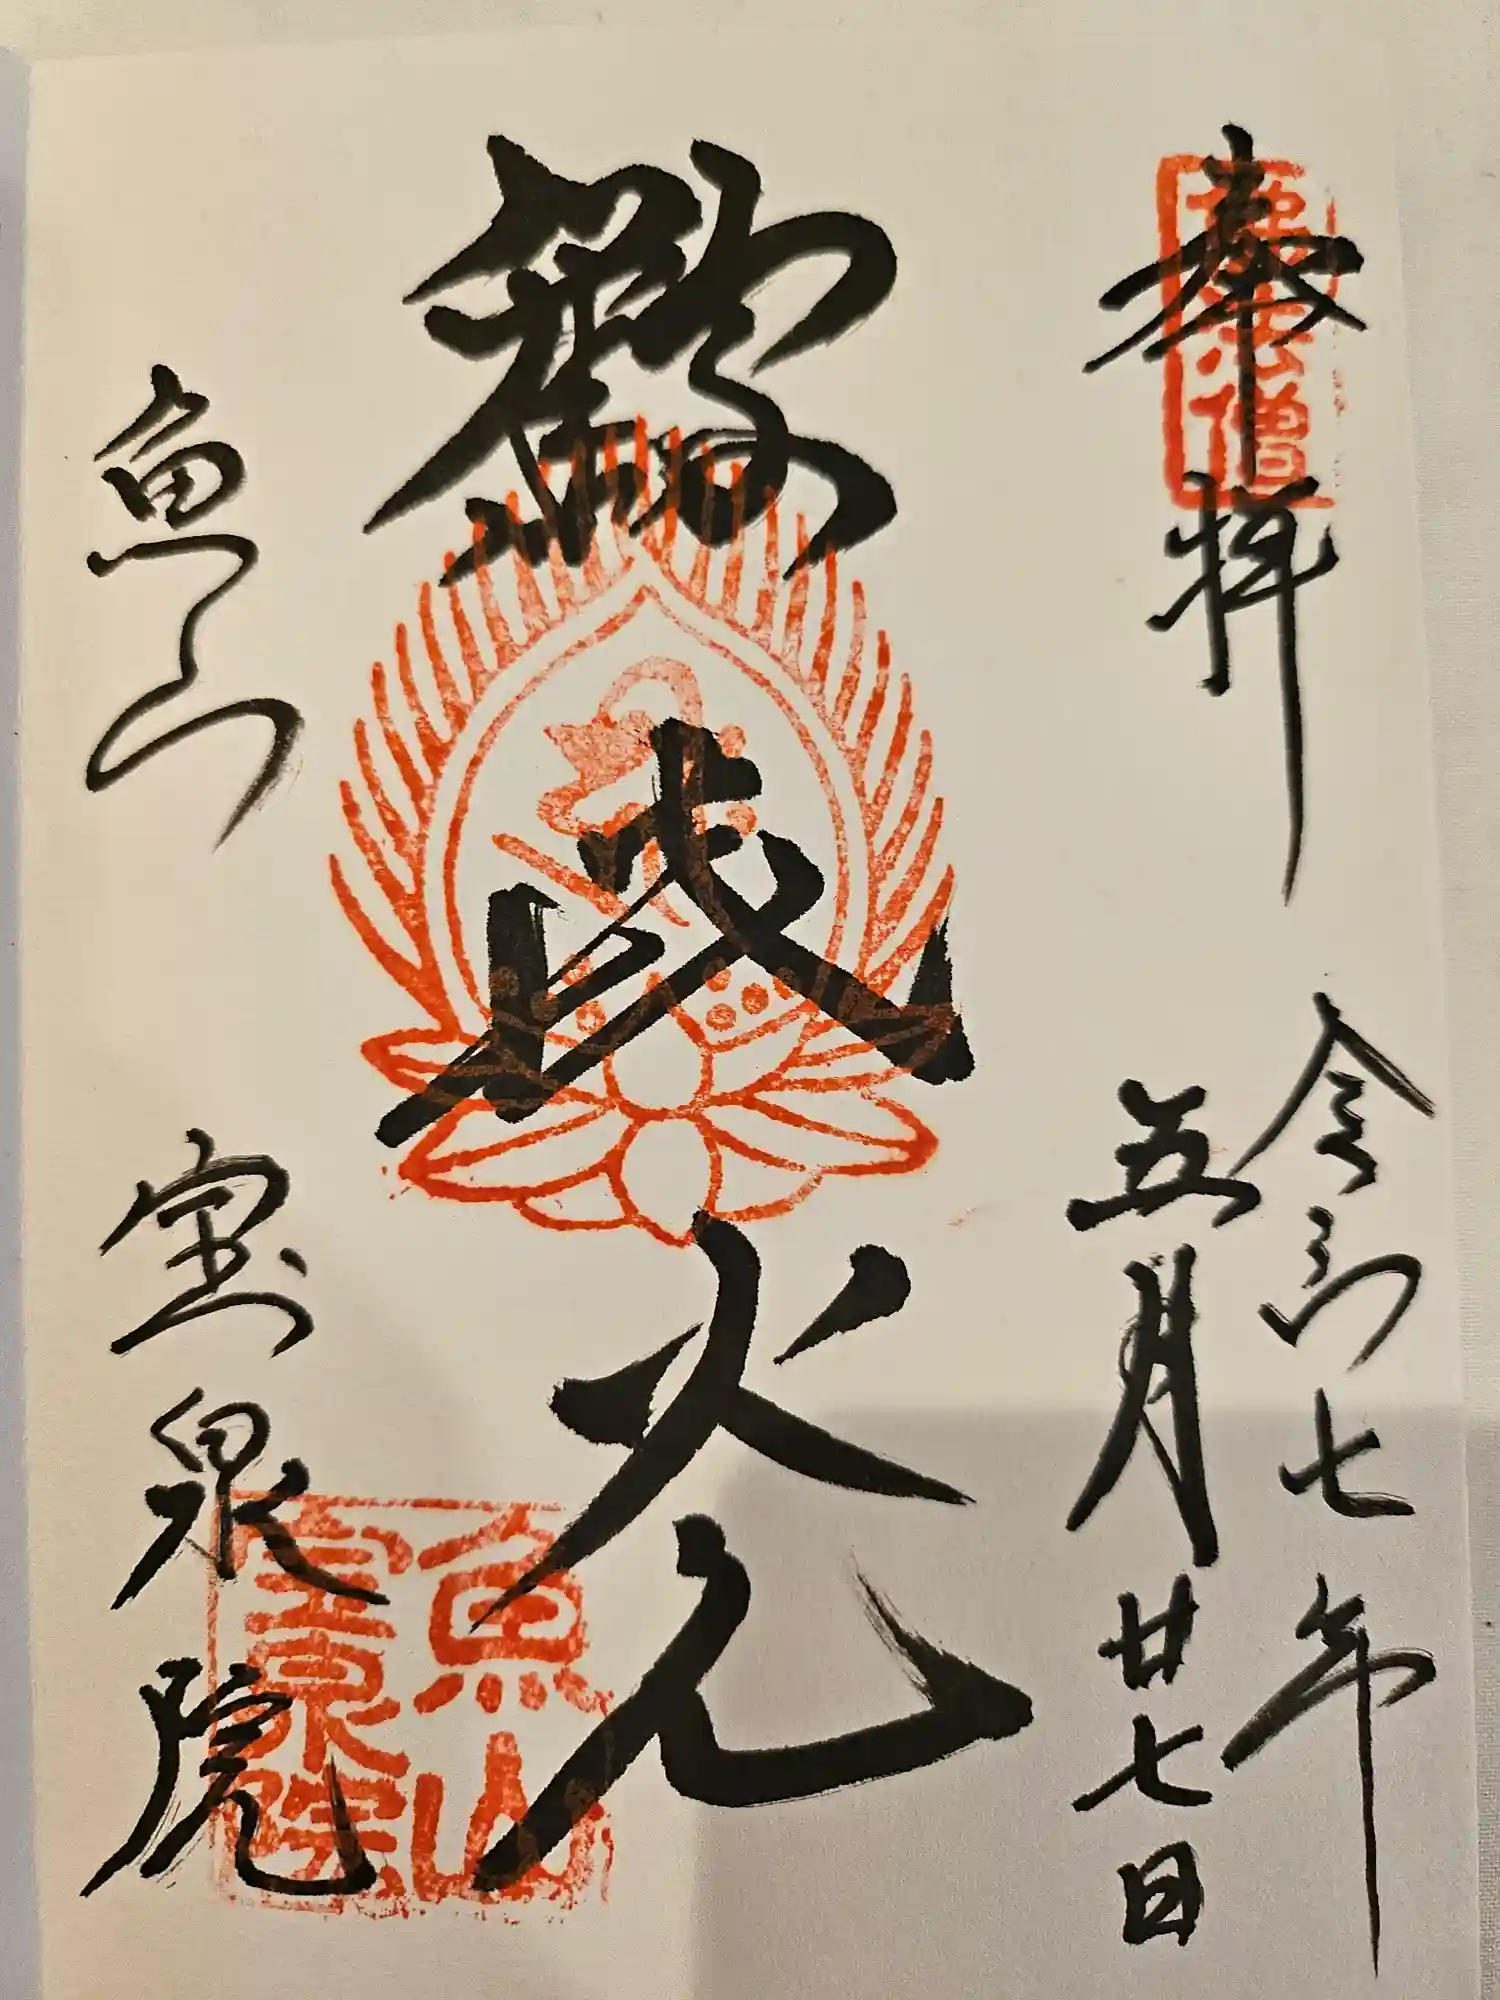 奉拝
佛法僧
令和七年
五月廿七日
光
魚山
宝泉院
魚山
宝泉院